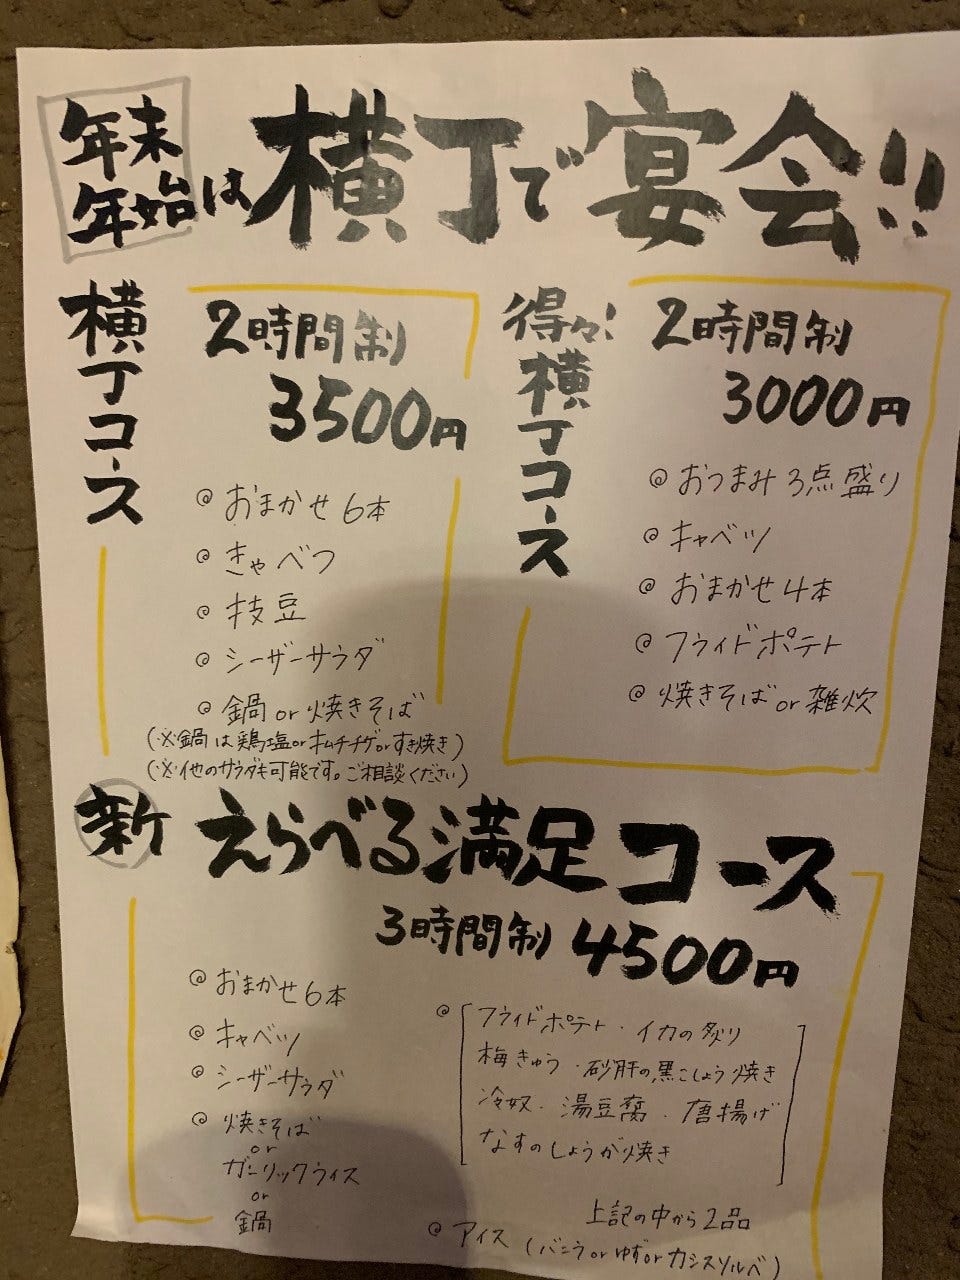 年末
年始は横丁で宴会!!
横丁コース
2時間制
3500円
◎おまかせ6本
◎きゃべつ
◎枝豆
◎シーザーサラダ
◎鍋or焼きそば
(※鍋は鶏塩orキムチチゲorすき焼き)
(※他のサラダも可能です。ご相談ください)
得々!横丁コース
2時間制
3000円
◎おつまみ3点盛り
◎キャベツ
◎おまかせ4本
◎フライドポテト
◎焼きそばor雑炊
新 えらべる満足コース
3時間制 4500円
◎おまかせ6本
◎キャベツ
◎シーザーサラダ
◎焼きそば
or
ガーリックライス
or
鍋
◎フライドポテト・イカの炙り
梅きゅう・砂肝の黒こしょう焼き
冷奴・湯豆腐・唐揚げ
なすのしょうが焼き
上記の中から2品
◎アイス(バニラorゆずorカシスソルベ)